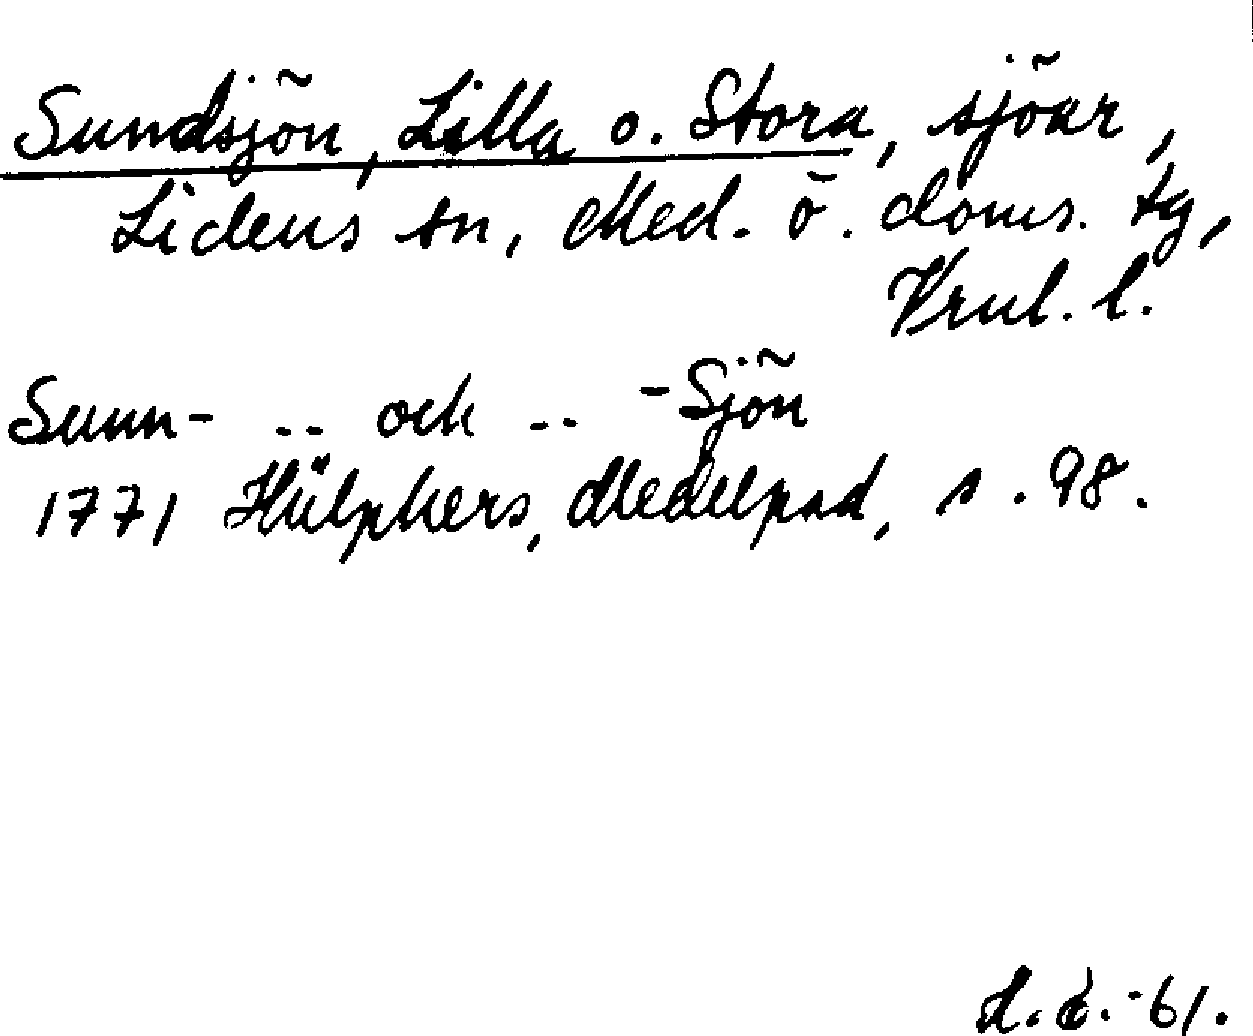 Sundsjön, Lilla o. Stora, sjöar,
Lidens sn, Med. ö. doms. tg,
Vrnl. l.
Sunn- .. och .. -Sjön
1771 Hülphers, Medelpad, s. 98.
-61.